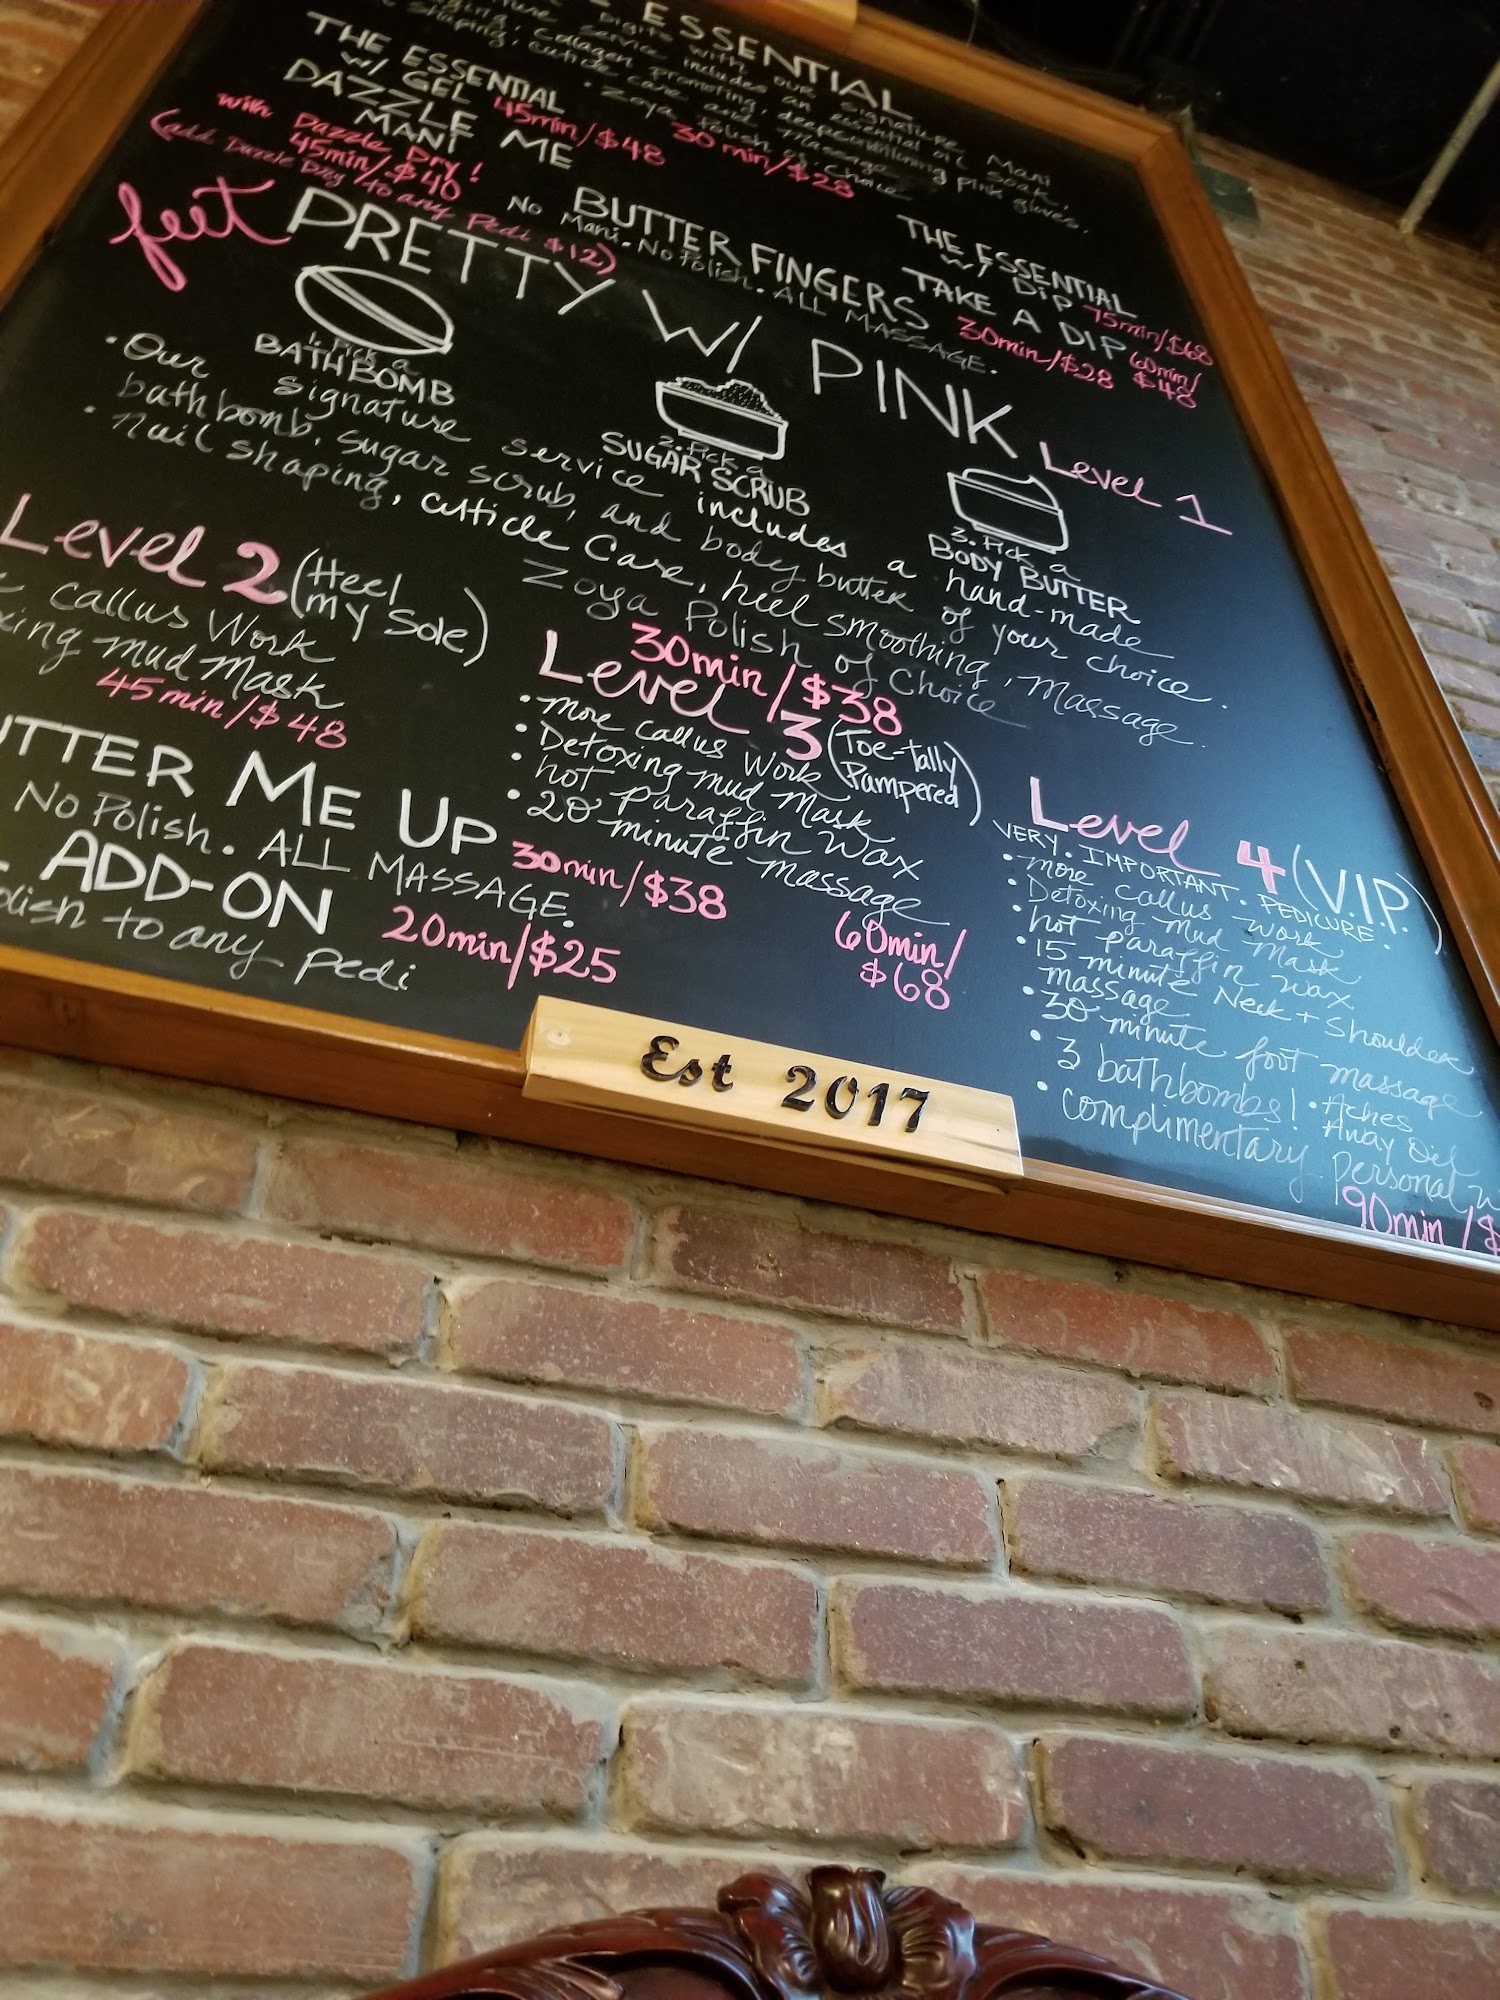 ESSENTIAL
Digits with our signature Mani
service includes an essential oil soak,
Collagen promoting, deep conditioning pink gloves.
shaping, cuticle care and massage
• Zoya Polish of Choice
30 min/$28
THE ESSENTIAL
W/ GEL 45min/$48
DAZZLE ME
MANI
with Dazzle Dry!
45min/$40
(add Dazzle Dry to any Pedi $12)
BUTTER FINGERS
No Mani. No Polish. ALL MASSAGE.
30min/$28
THE ESSENTIAL
W/ Dip 75min/$68
TAKE A DIP 60min/
$48
feet PRETTY W/ PINK Level 1
1. Pick a
BATH BOMB
2. Pick a
SUGAR SCRUB
3. Pick a
BODY BUTTER
• Our signature service includes a hand-made
bath bomb, sugar scrub, and body butter of your choice.
• nail shaping, cuticle Care, heel smoothing, massage.
Zoya Polish of Choice
30min/$38
Level 2 (Heel
my Sole)
callus Work
mud Mask
45min/$48
Level 3 (Toe-tally
Pampered)
• more callus Work
• Detoxing mud Mask
• hot paraffin Wax
• 20 minute massage
60min/
$68
ME UP
No Polish. ALL MASSAGE.
30min/$38
ADD-ON
to any pedi
20min/$25
Level 4 (V.I.P.)
VERY. IMPORTANT. PEDICURE.
• more callus Work
• Detoxing Mud Mask
• hot paraffin Wax
• 15 minute Neck + Shoulder
massage
• 30 minute foot massage
• 3 bathbombs! • Aches
Away Oil
• complimentary personal
90min/$
Est 2017